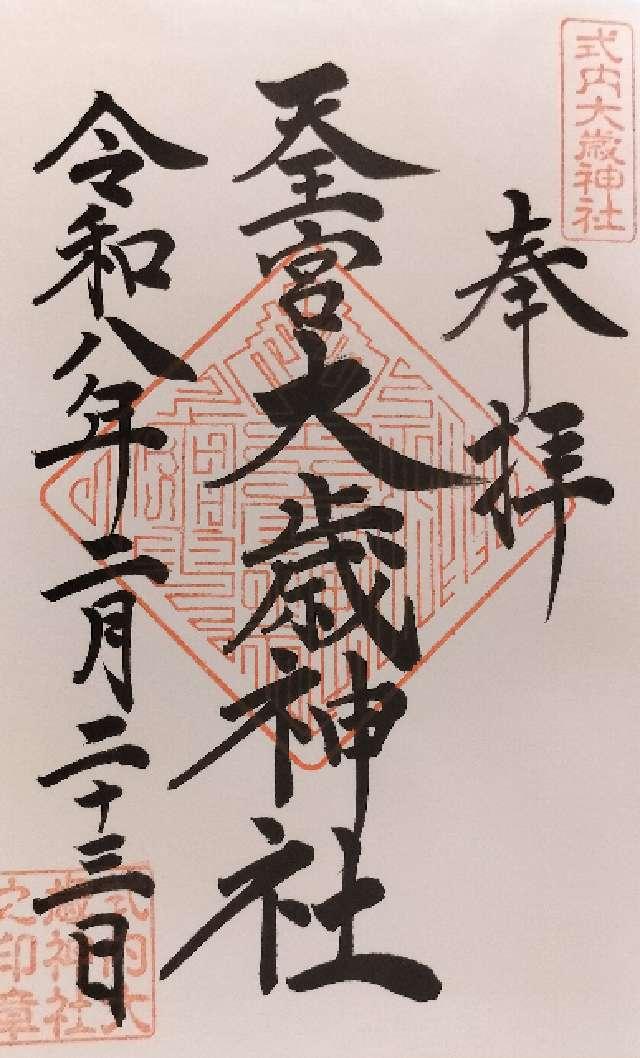 式内大歳神社
奉拝
天王宮大歳神社
令和八年二月二十三日
式内大
歳神社
之印章